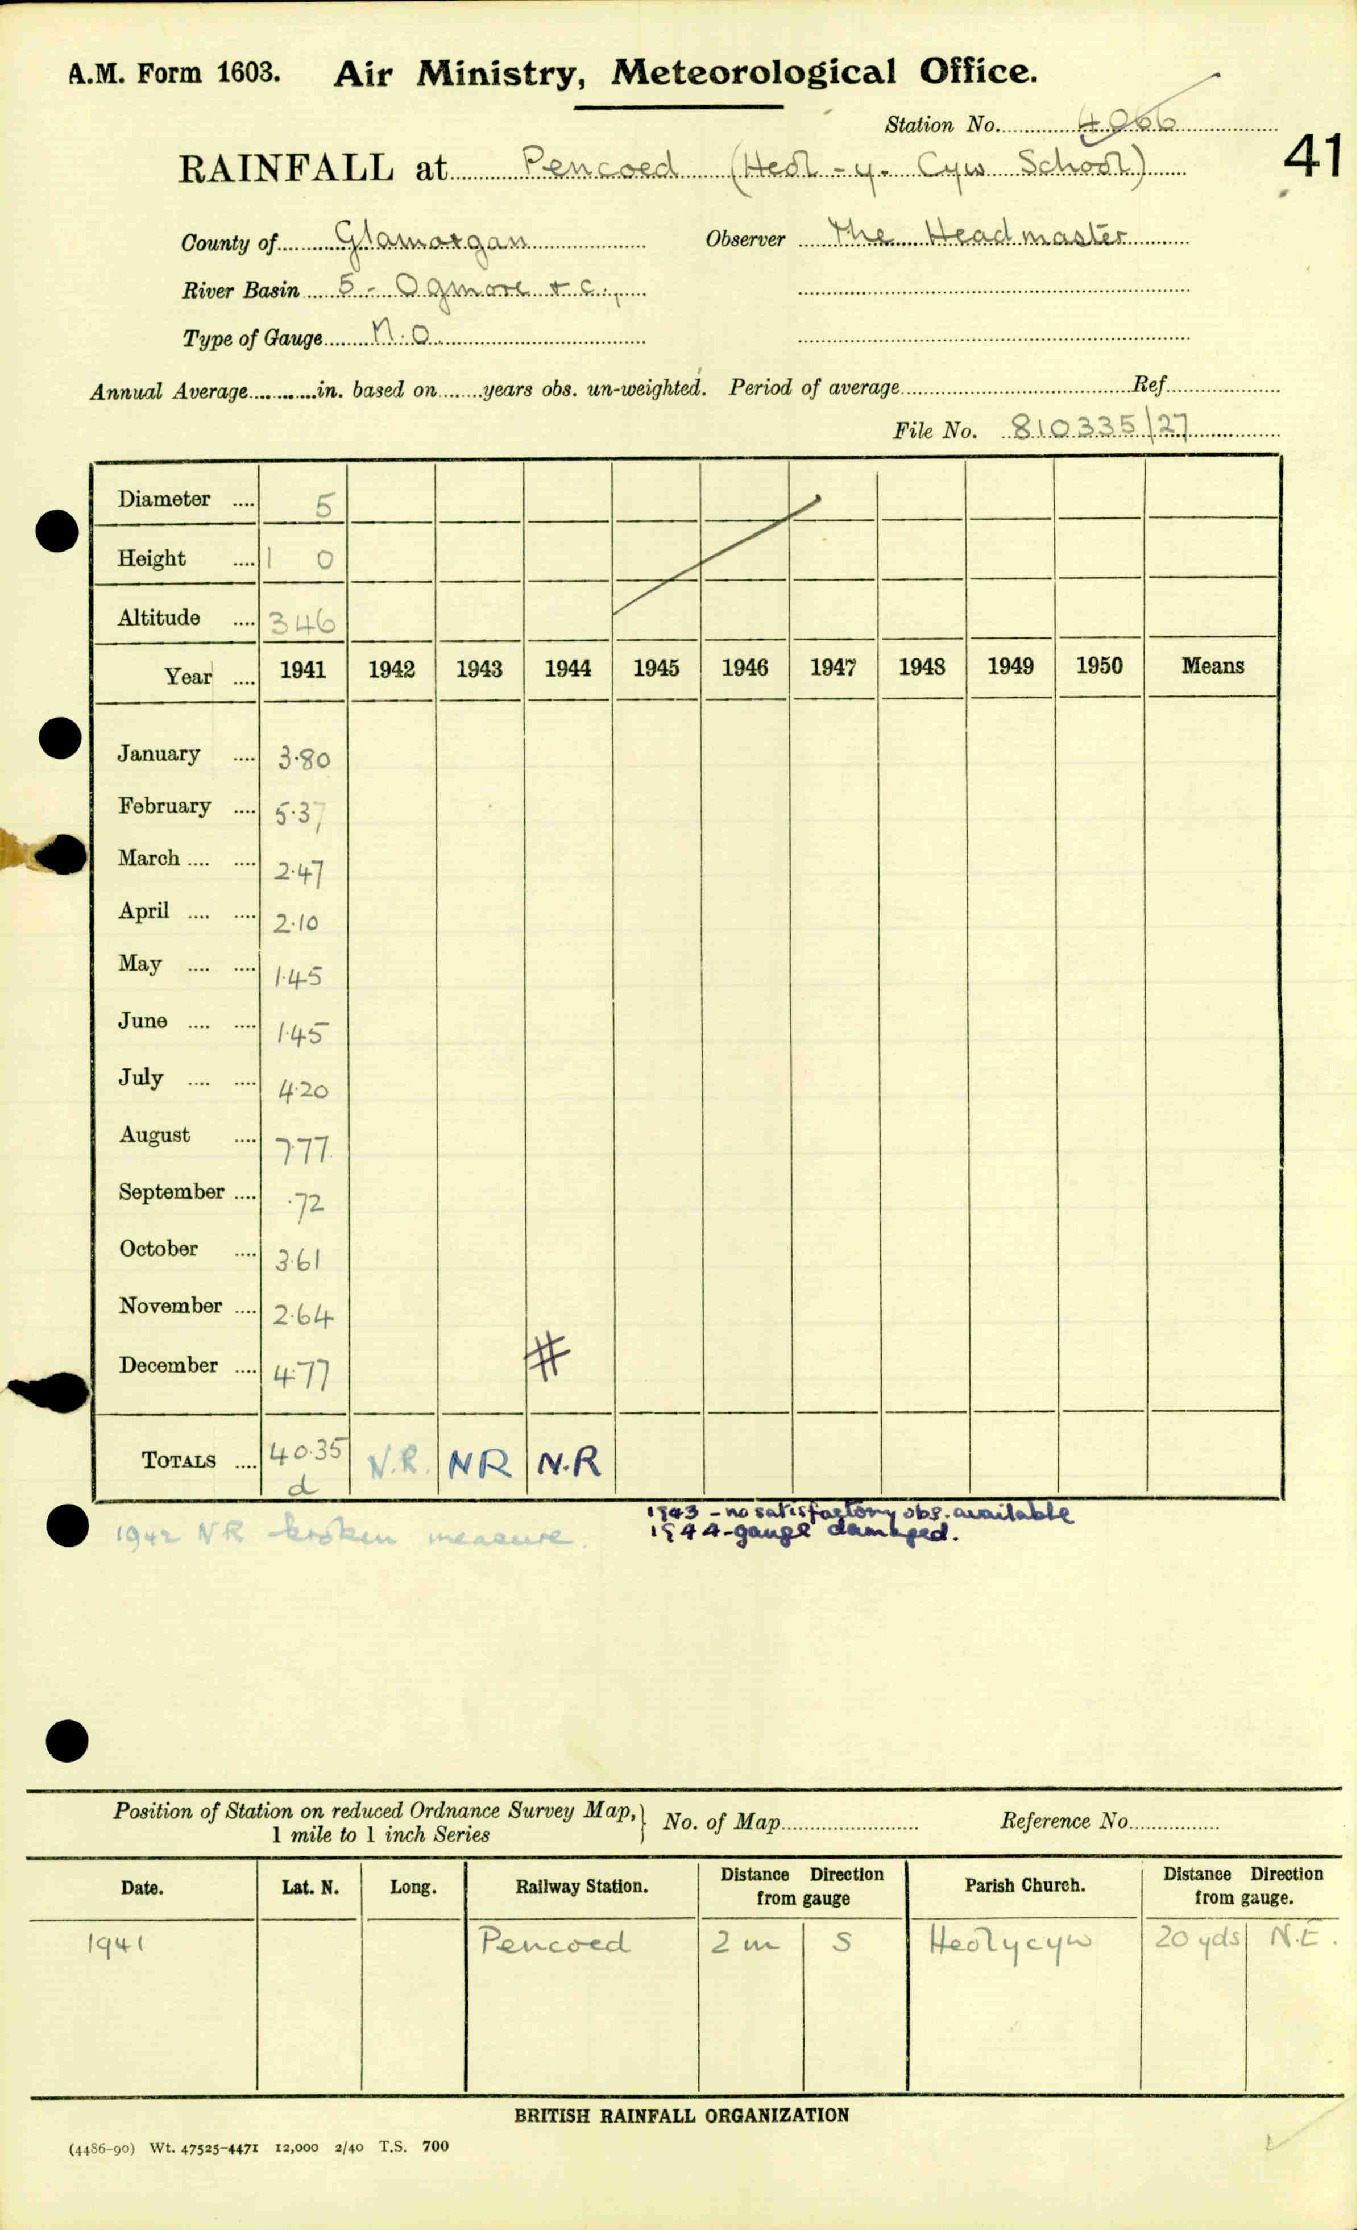 A.M. Form 1603. Air Ministry, Meteorological Office.
Station No. 4066
41
RAINFALL at Pencoed (Heol-y-Cyw School)
County of Glamorgan Observer The Headmaster
River Basin 5 - Ogmore & c.,
Type of Gauge M.O.
Annual Average in. based on years obs. un-weighted. Period of average Ref.
File No. 810335/27
Diameter .... 5
Height .... 1 0
Altitude .... 346
Year .... 1941 1942 1943 1944 1945 1946 1947 1948 1949 1950 Means
January .... 3.80
February .... 5.37
March .... .... 2.47
April .... .... 2.10
May .... .... 1.45
June .... .... 1.45
July .... .... 4.20
August .... 7.77
September .... .72
October .... 3.61
November .... 2.64
December .... 4.77 #
TOTALS .... 40.35 N.R. NR N.R
d
1943 - no satisfactory obs. available
1942 NR broken measure. 1944 - gauge damaged.
Position of Station on reduced Ordnance Survey Map, } No. of Map Reference No.
1 mile to 1 inch Series
Date. Lat. N. Long. Railway Station. Distance Direction from gauge Parish Church. Distance Direction from gauge.
1941 Pencoed 2 m S Heolycyw 20 yds N.E.
BRITISH RAINFALL ORGANIZATION
(4486-90) Wt. 47525-4471 12,000 2/40 T.S. 700